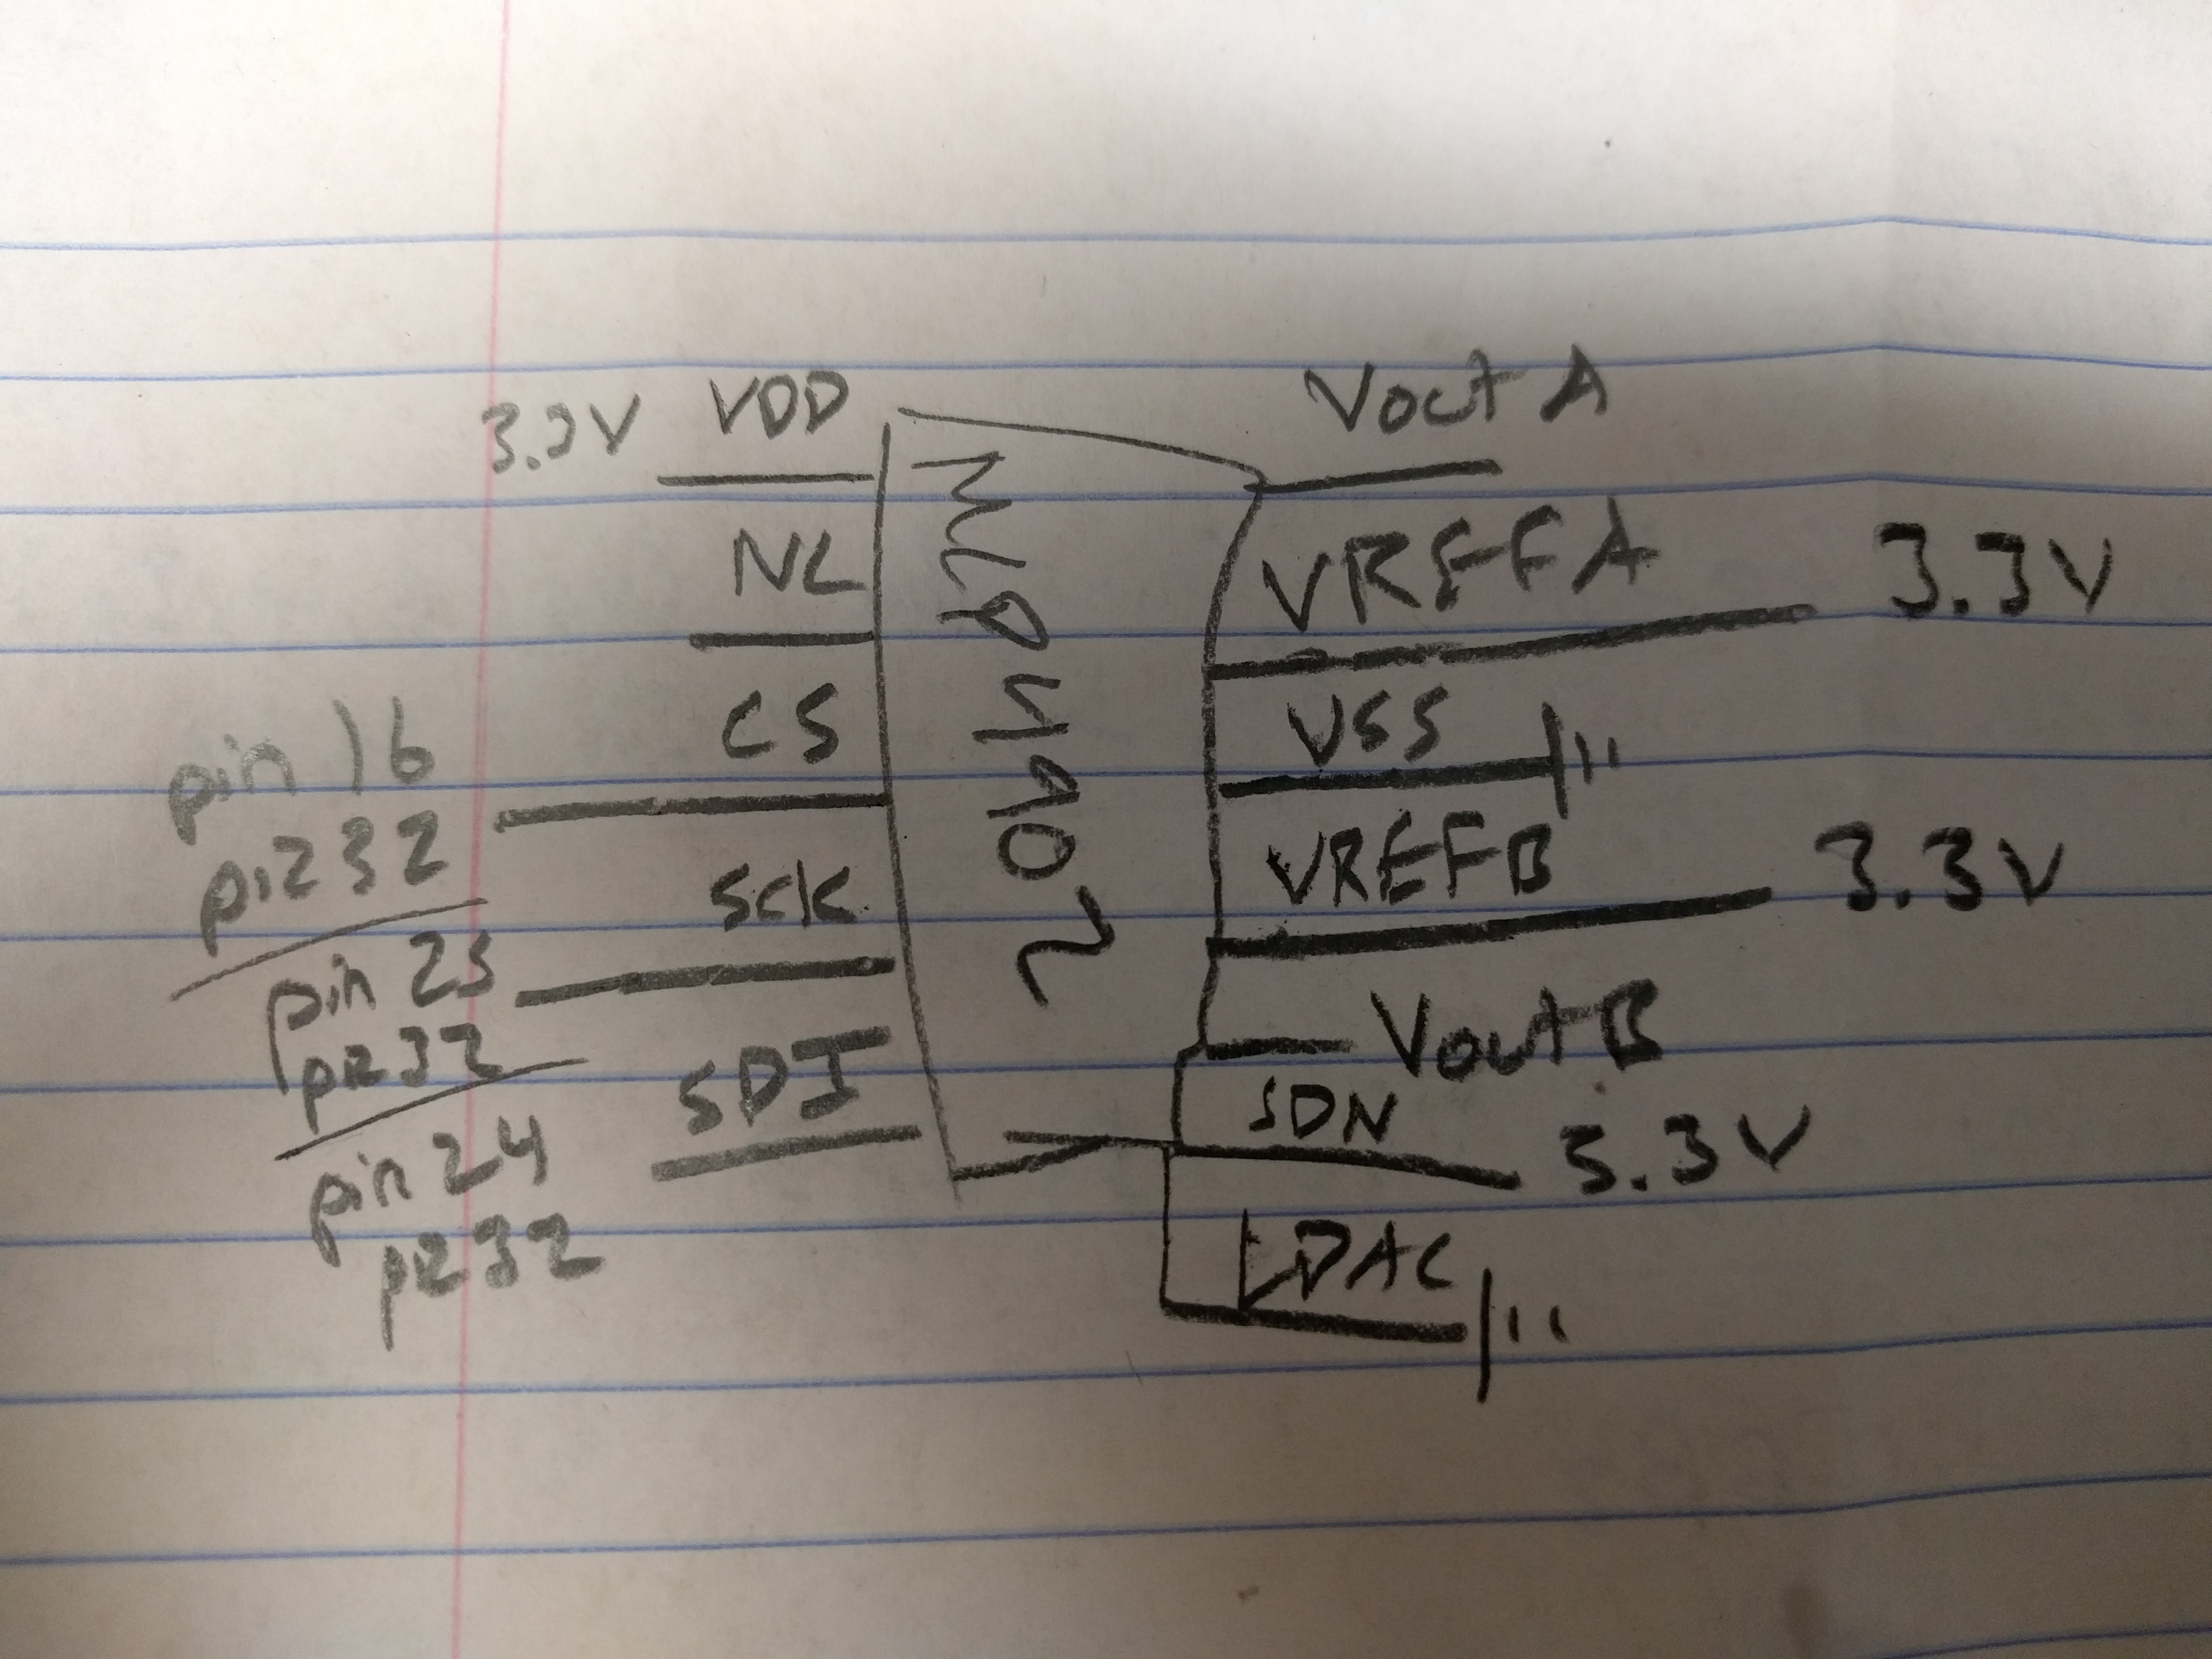 3.3V VDD
NC
CS
pin 16
pic32
SCK
pin 25
pic32
SDI
pin 24
pic32
MCP4902
Vout A
VREFA 3.3V
VSS
VREFB 3.3V
Vout B
SDN 3.3V
LDAC